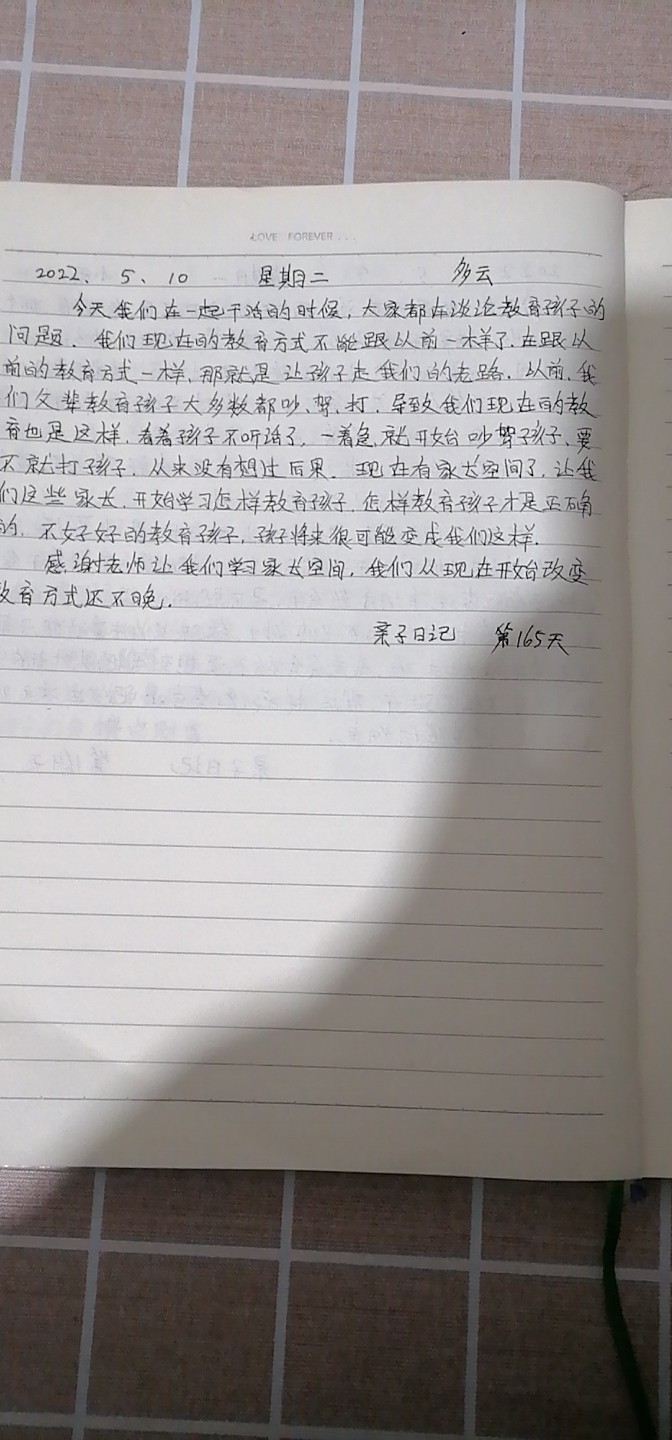 LOVE FOREVER...
2022. 5. 10 星期二 多云
今天我们在一起干活的时候,大家都在谈论教育孩子的
问题.我们现在的教育方式不能跟以前一样了.在跟以
前的教育方式一样,那就是让孩子走我们的老路.以前,我
们父辈教育孩子大多数都吵、骂、打.导致我们现在的教
育也是这样,看着孩子不听话了,一着急就开始吵骂孩子、要
不就打孩子,从来没有想过后果.现在有家长空间了,让我
们这些家长,开始学习怎样教育孩子,怎样教育孩子才是正确
的,不好好的教育孩子,孩子将来很可能变成我们这样.
感谢老师让我们学习家长空间,我们从现在开始改变
教育方式还不晚.
亲子日记 第165天